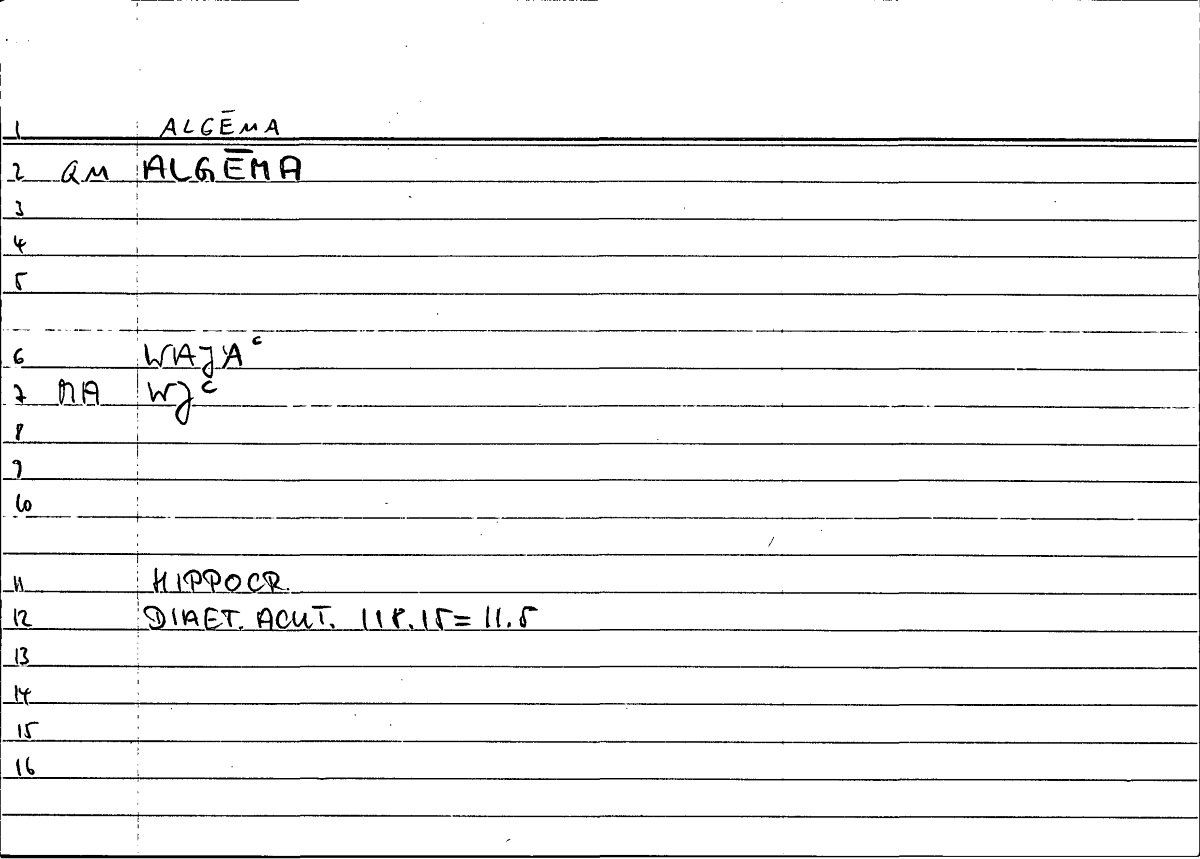 1 ALGĒMA
2 QM ALGĒMA
3
4
5
6 WAJAᶜ
7 MA WJᶜ
8
9
10
11 HIPPOCR.
12 DIAET. ACUT. 118.15 = 11.5
13
14
15
16